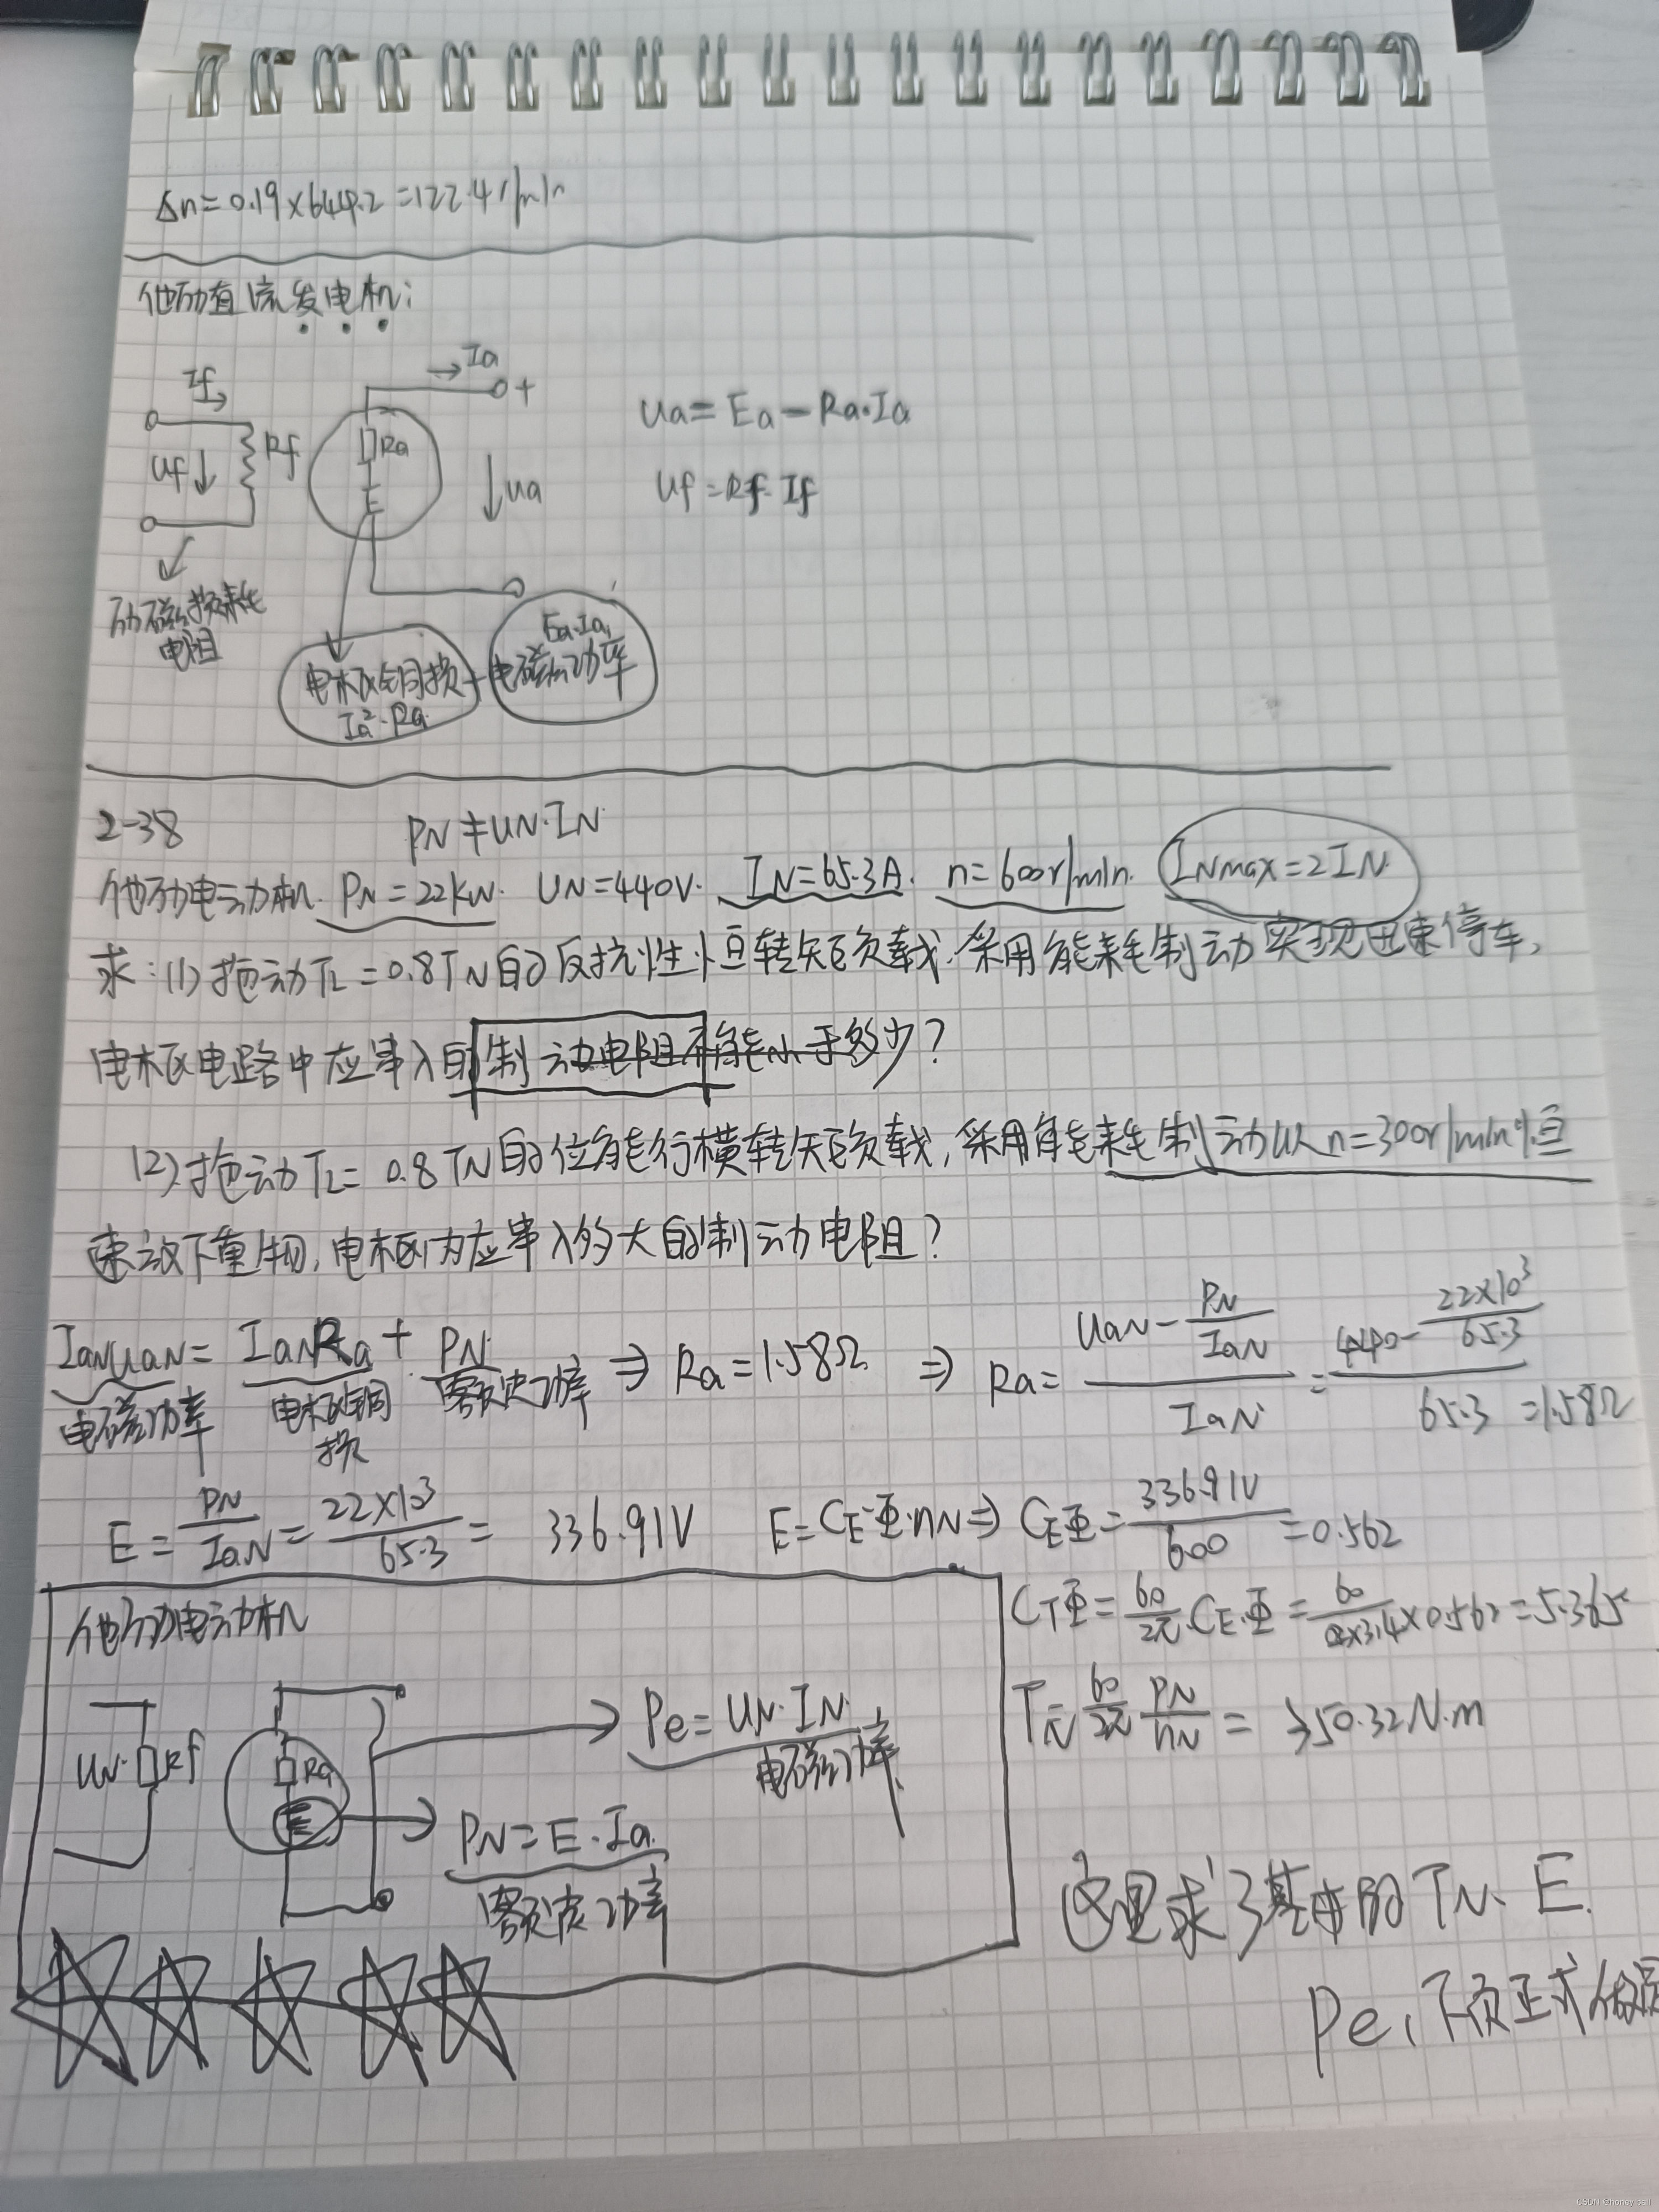 Δn=0.19×644.2=122.4r/min
他励直流发电机:
If
→Ia
+
Uf↓
Rf
Ra
E
↓ua
ua=Ea-Ra·Ia
Uf=Rf·If
励磁损耗
电阻
电枢铜损
Ia²·Ra
+
Ea·Ia,
电磁功率
2-38
PN≠UN·IN
他励电动机. PN=22kW. UN=440V. IN=65.3A. n=600r/min. INmax=2IN
求:(1)拖动TL=0.8TN的反抗性恒转矩负载.采用能耗制动实现迅速停车,
电枢电路中应串入的制动电阻不能小于多少?
(2)拖动TL=0.8TN的位能行横转矩负载,采用能耗制动以n=300r/min恒
速放下重物,电枢内应串入多大的制动电阻?
IaNUaN=IaNRa+PN⇒Ra=1.58Ω ⇒Ra=(UaN-PN/IaN)/IaN=(440-22×10³/65.3)/65.3=1.58Ω
电磁功率
电枢铜
损
额定功率
E=PN/IaN=22×10³/65.3=336.91V E=CEΦ·nN⇒CEΦ=336.91V/600=0.562
他励电动机
CTΦ=60/2π·CE·Φ=60/2×3.14×0.562=5.365
UN·
Rf
Ra
E
Pe=UN·IN.
电磁功率
TN=60/2π PN/nN=350.32N·m
PN=E·Ia.
额定功率
这里求了基本的TN、E.
Pe,下页正式做